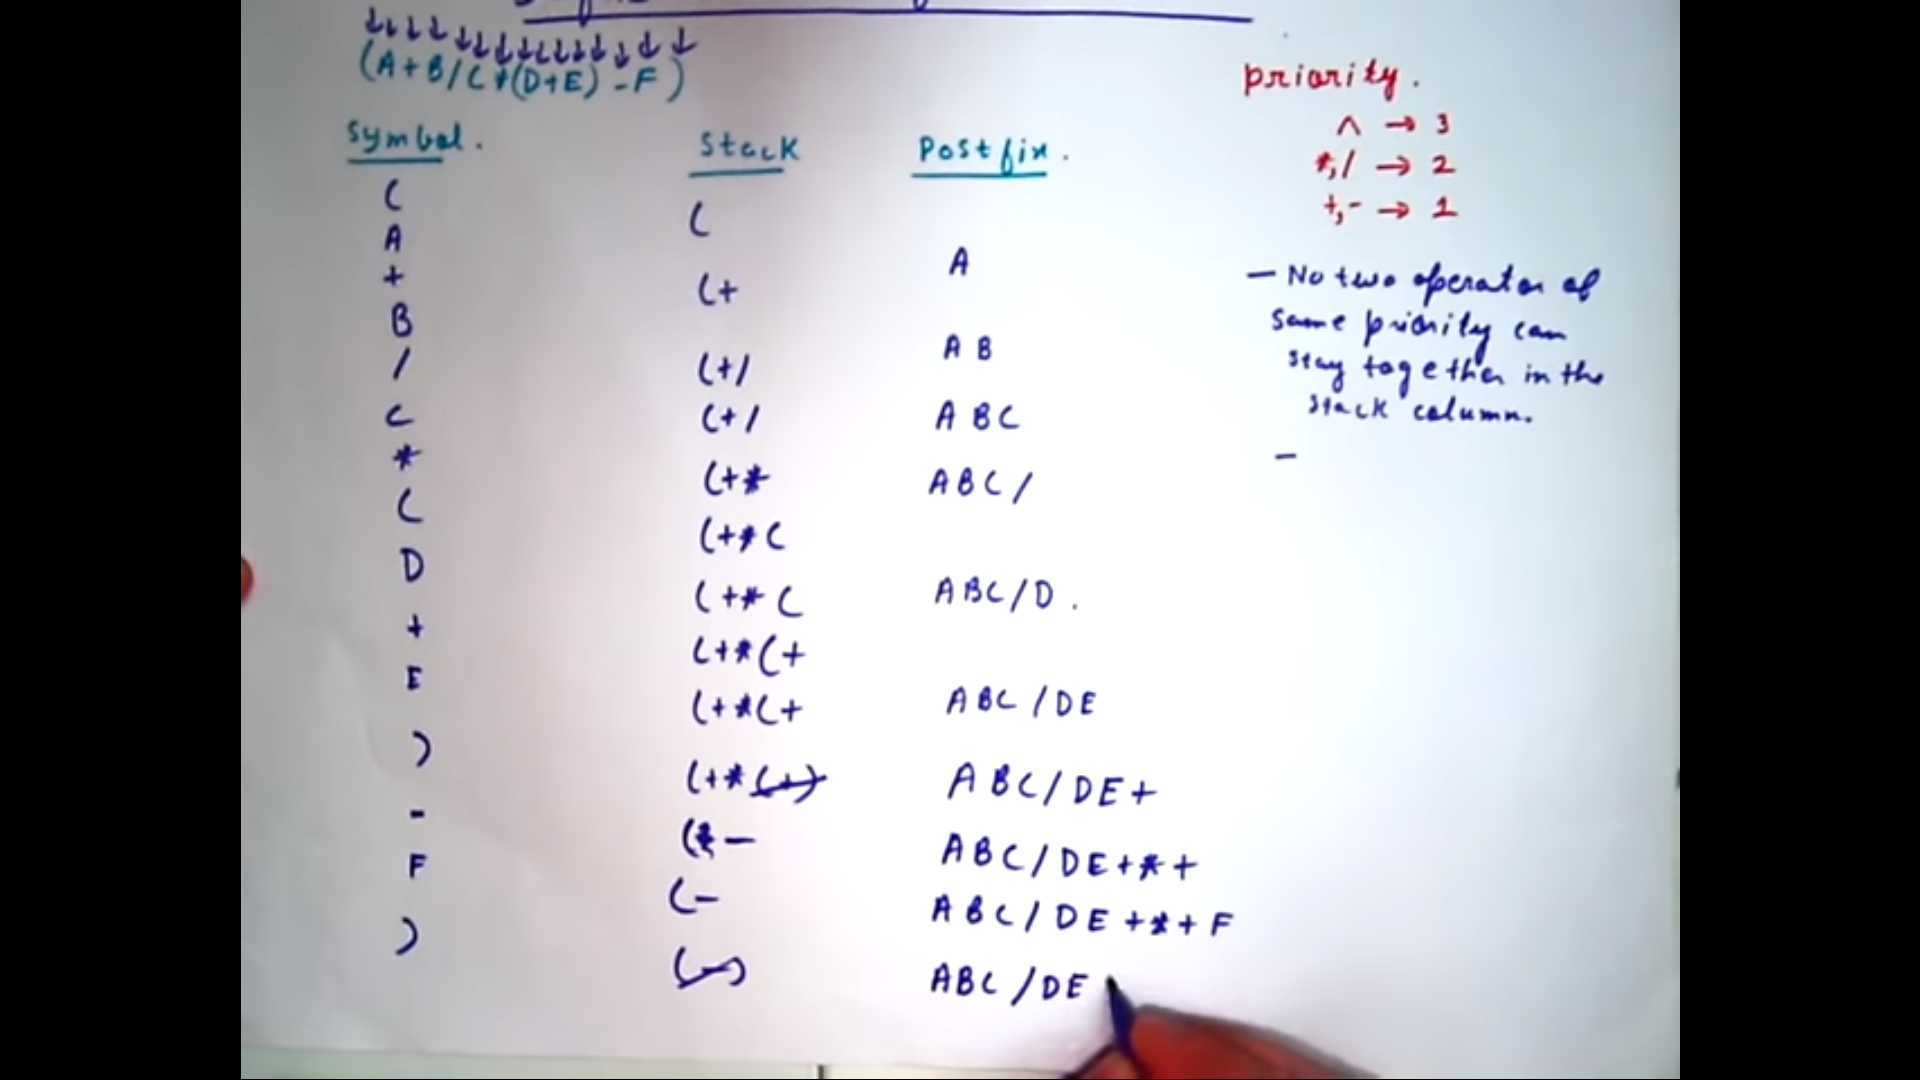 (A+B/C*(D+E)-F)
Symbol. Stack Postfix.
( (
A A
+ (+
B AB
/ (+/
C (+/ ABC
* (+* ABC/
( (+*(
D (+*( ABC/D.
+ (+*(+
E (+*(+ ABC/DE
) (+*(+) ABC/DE+
- (* - ABC/DE+*+
F (- ABC/DE+*+F
) (-) ABC/DE
priority.
^ → 3
*,/ → 2
+,- → 1
- No two operator of
same priority can
stay together in the
stack column.
-